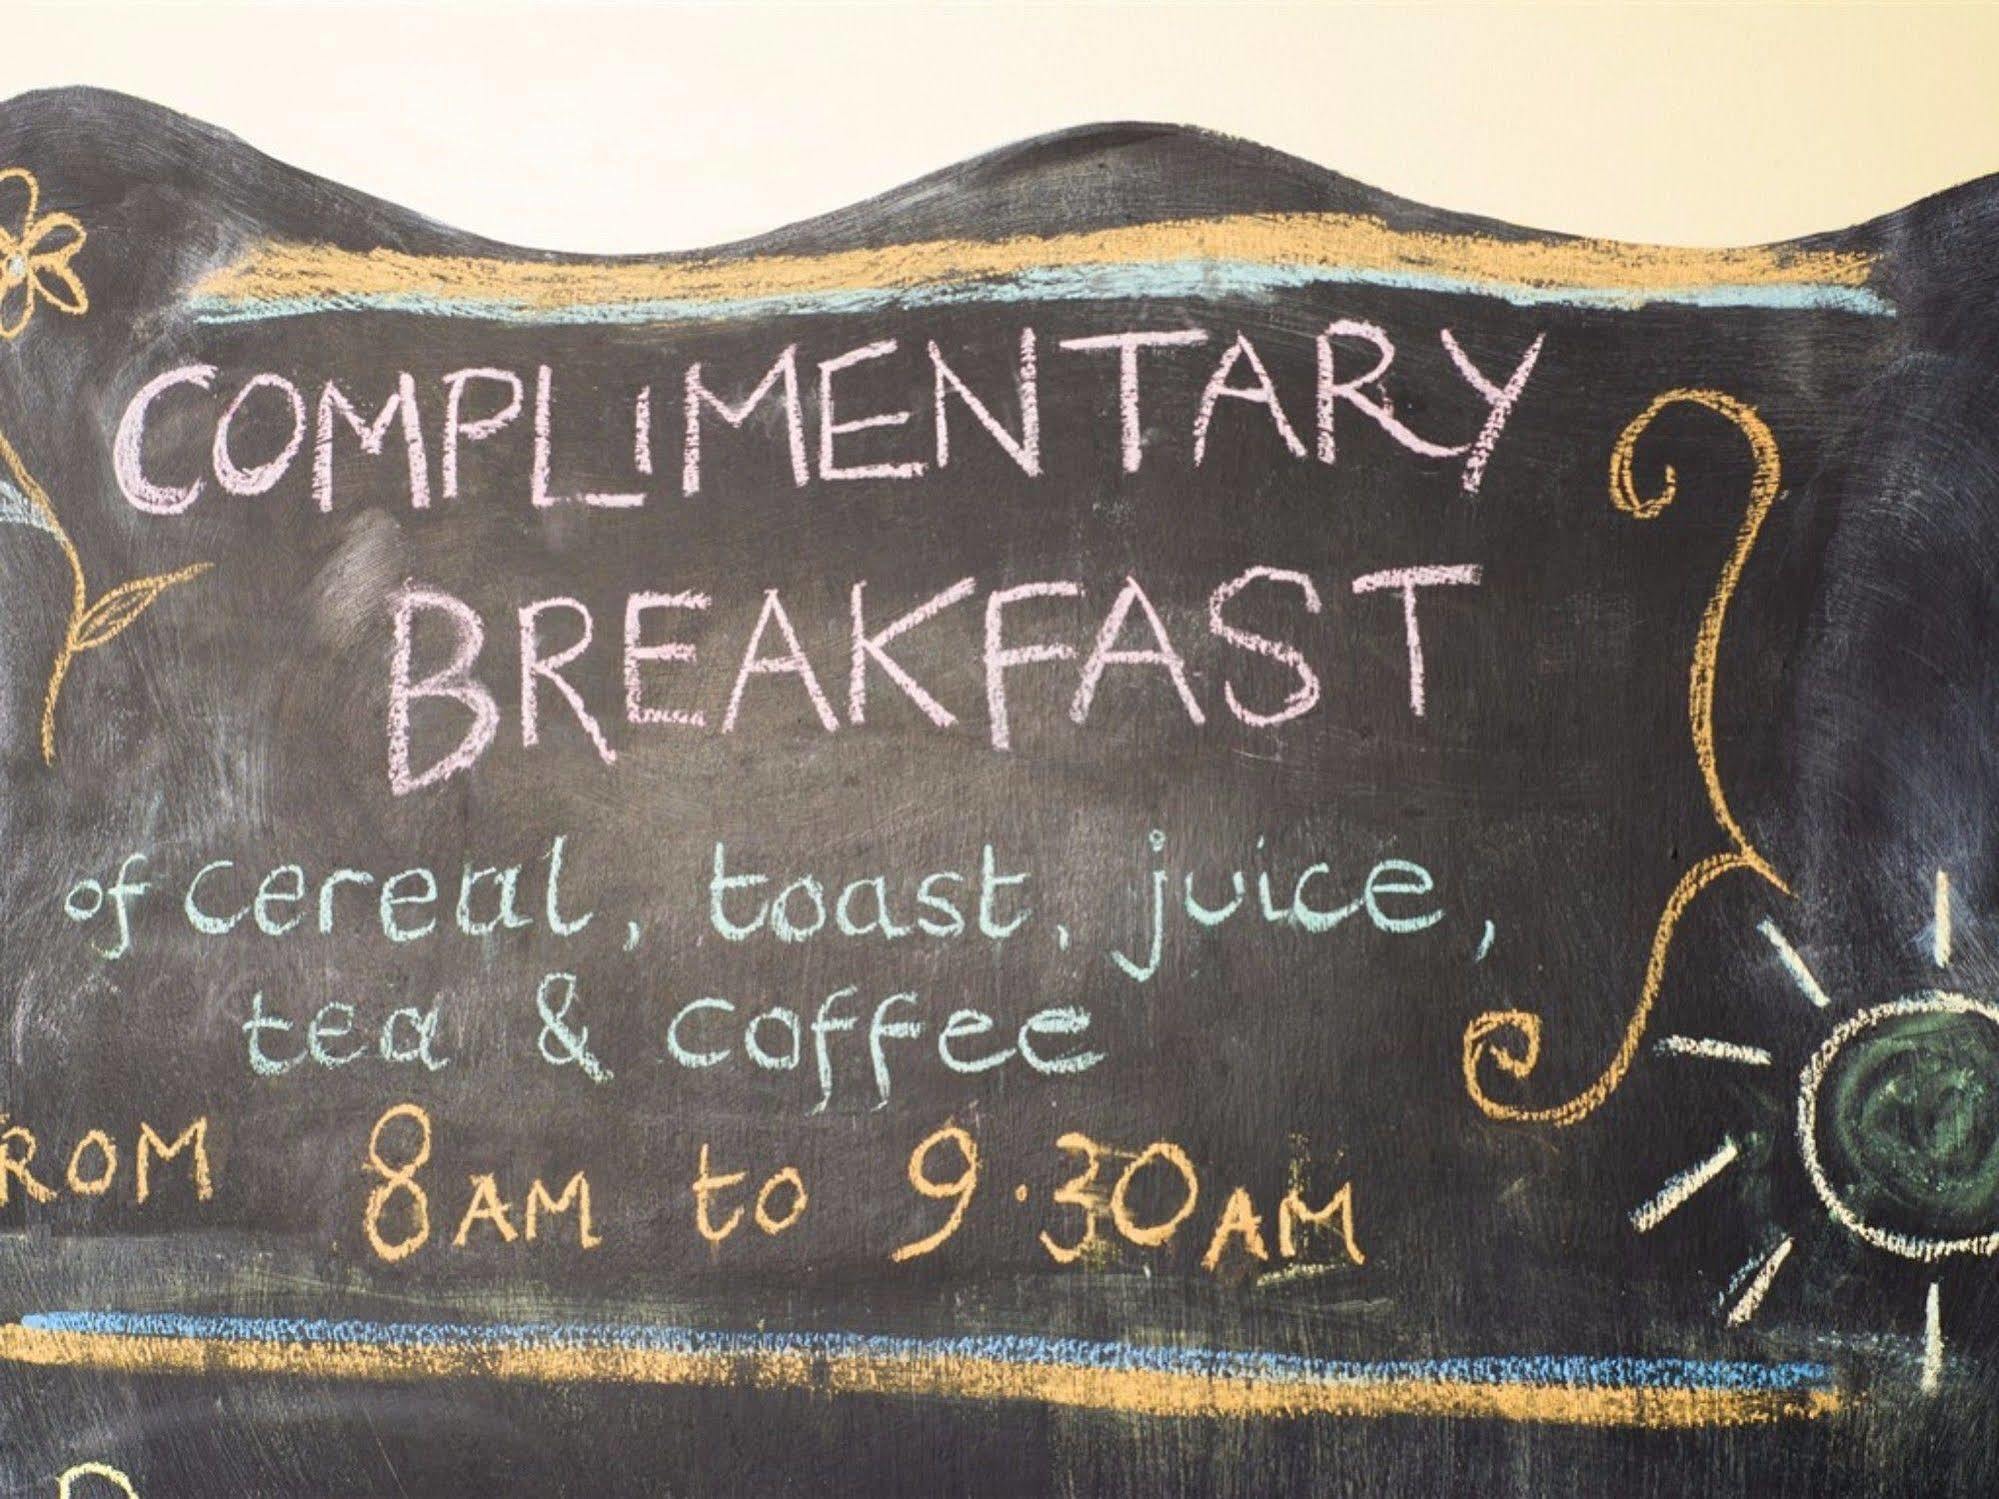 COMPLIMENTARY
BREAKFAST
of cereal, toast, juice,
tea & coffee
ROM 8AM to 9.30AM